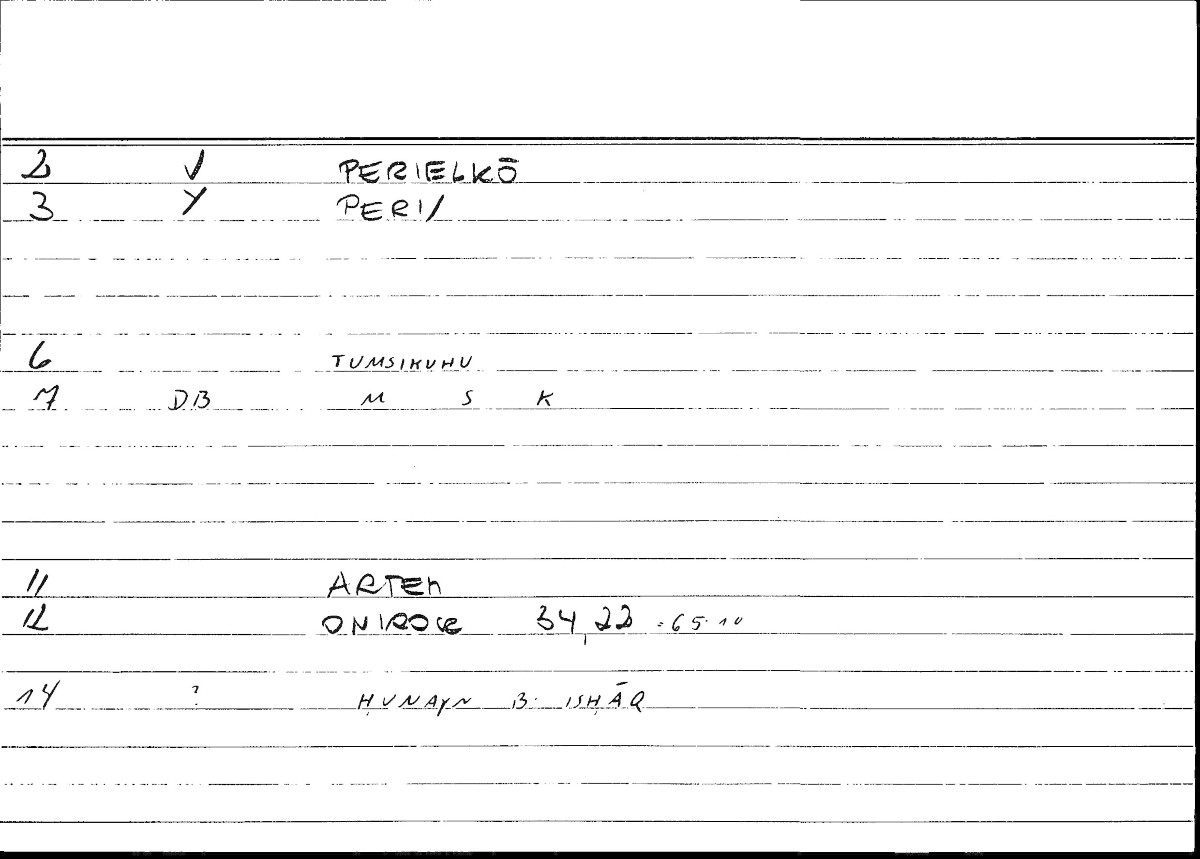 2 V PERIELKŌ
3 Y PERI/
6 TUMSIKUHU
7 DB M S K
11 ARTEM
12 ONIROCR 34,22 = 65.10
14 ? ḤUNAYN B. ISḤĀQ